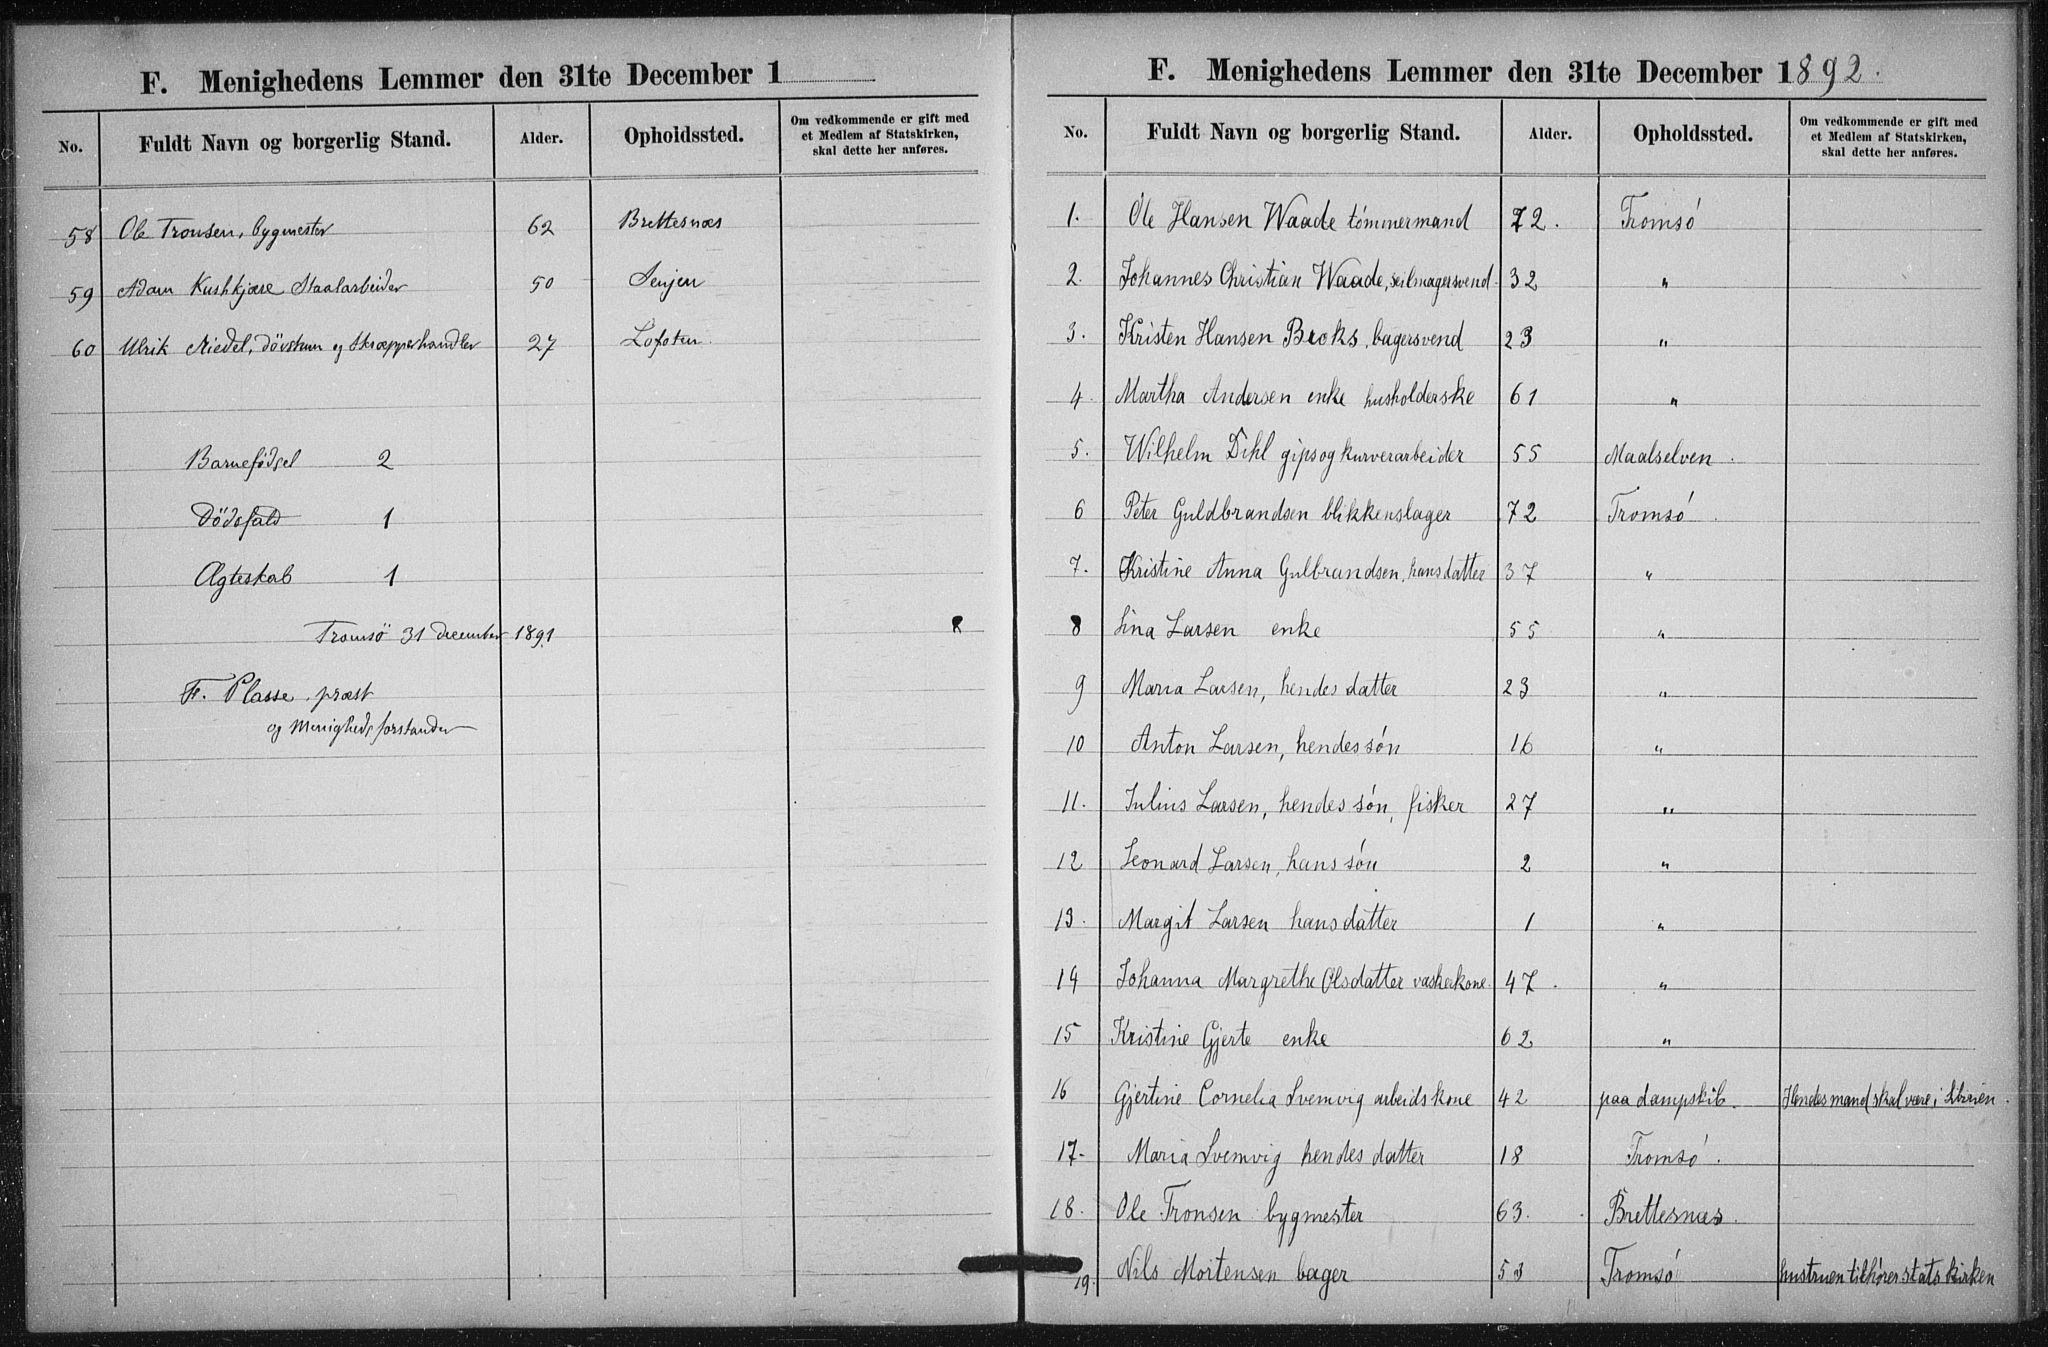 F. Menighedens Lemmer den 31te December 1
No. Fuldt Navn og borgerlig Stand. Alder. Opholdssted. Om vedkommende er gift med
et Medlem af Statskirken,
skal dette her anføres.
58 Ole Tronsen, bygmester 62 Brettesnæs
59 Adam Kushkjære Staalarbeider 50 Senjen
60 Ulrik Riedel, døvstum og Skræpperhandler 27 Lofoten
Barnefødsel 2
Dødsfald 1
Ægteskab 1
Tromsö 31 december 1891
F. Plasse, præst
og Menighedsforstander
F. Menighedens Lemmer den 31te December 1892.
No. Fuldt Navn og borgerlig Stand. Alder. Opholdssted. Om vedkommende er gift med
et Medlem af Statskirken,
skal dette her anføres.
1. Ole Hansen Waade tömmermand 72. Tromsó
2. Johannes Christian Waade, seilmagersvend 32 "
3. Kristen Hansen Broks, bagersvend 23 "
4. Martha Andersen enke husholderske 61 "
5. Wilhelm Dihl gips og kurverarbeider 55 Maalselven.
6 Peter Guldbrandsen blikkenslager 72 Tromsó.
7. Kristine Anna Gulbrandsen, hans datter 37 "
8 Lina Larsen enke 55 "
9 Maria Larsen, hendes datter 23 "
10 Anton Larsen, hendes són 16 "
11. Julius Larsen, hendes són, fisker 27 "
12 Leonard Larsen, hans són 2 "
13. Margit Larsen hans datter 1 "
14 Johanna Margrethe Olsdatter vaskekone. 47. "
15 Kristine Gjerte enke 62 "
16 Gjertine Cornelia Svemvig arbeidskone 42 paa dampskib. Hendes mand skal være i Sibirien.
17. Maria Svemvig hendes datter 18 Tromsó.
18. Ole Tronsen bygmester 63. Brettesnæs.
19. Nils Mortensen bager 53 Tromsó hustruen tilhörer statskirken